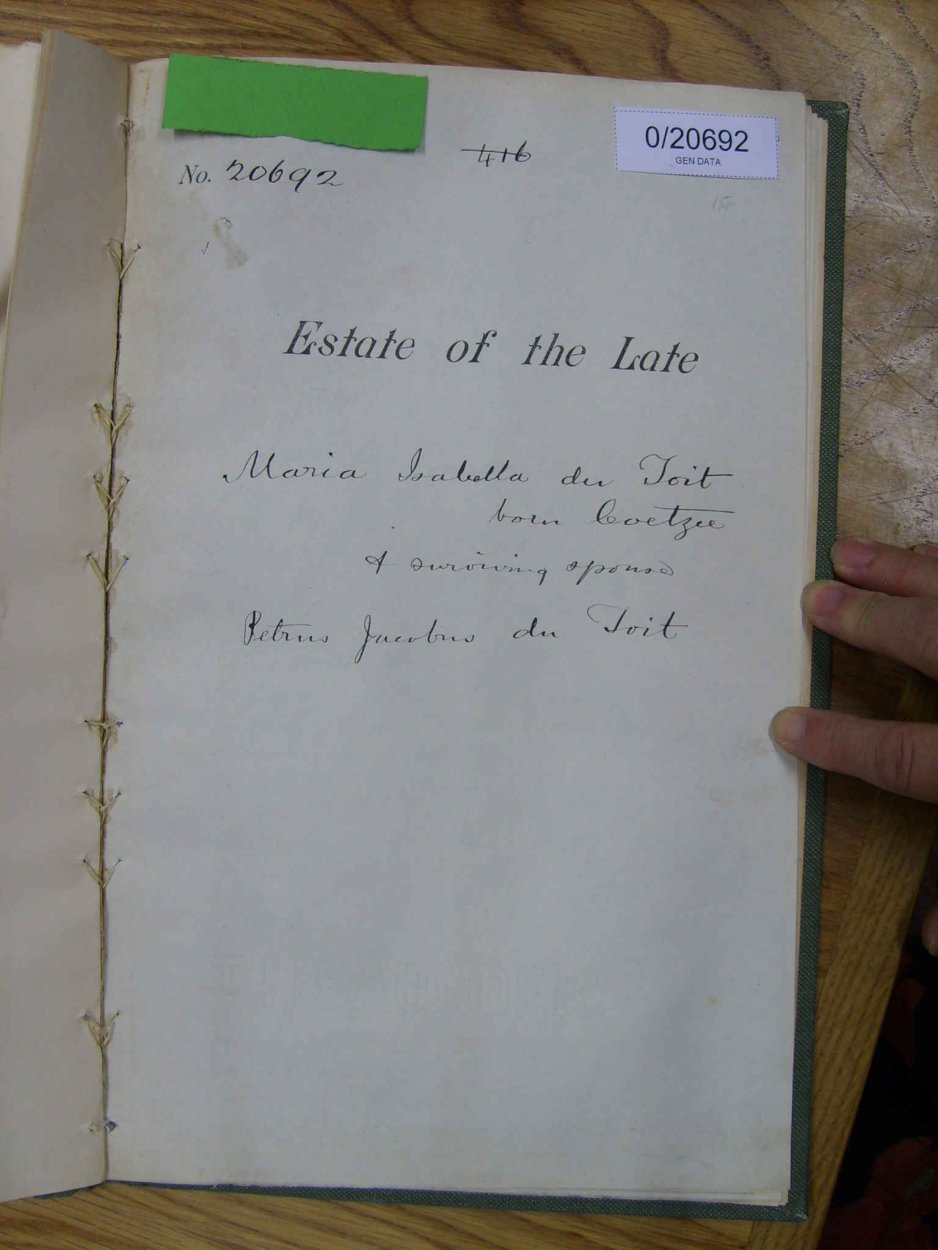 416
0/20692
GEN DATA
No. 20692
Estate of the Late
Maria Isabella du Toit
born Coetzee
& surviving spouse
Petrus Jacobus du Toit